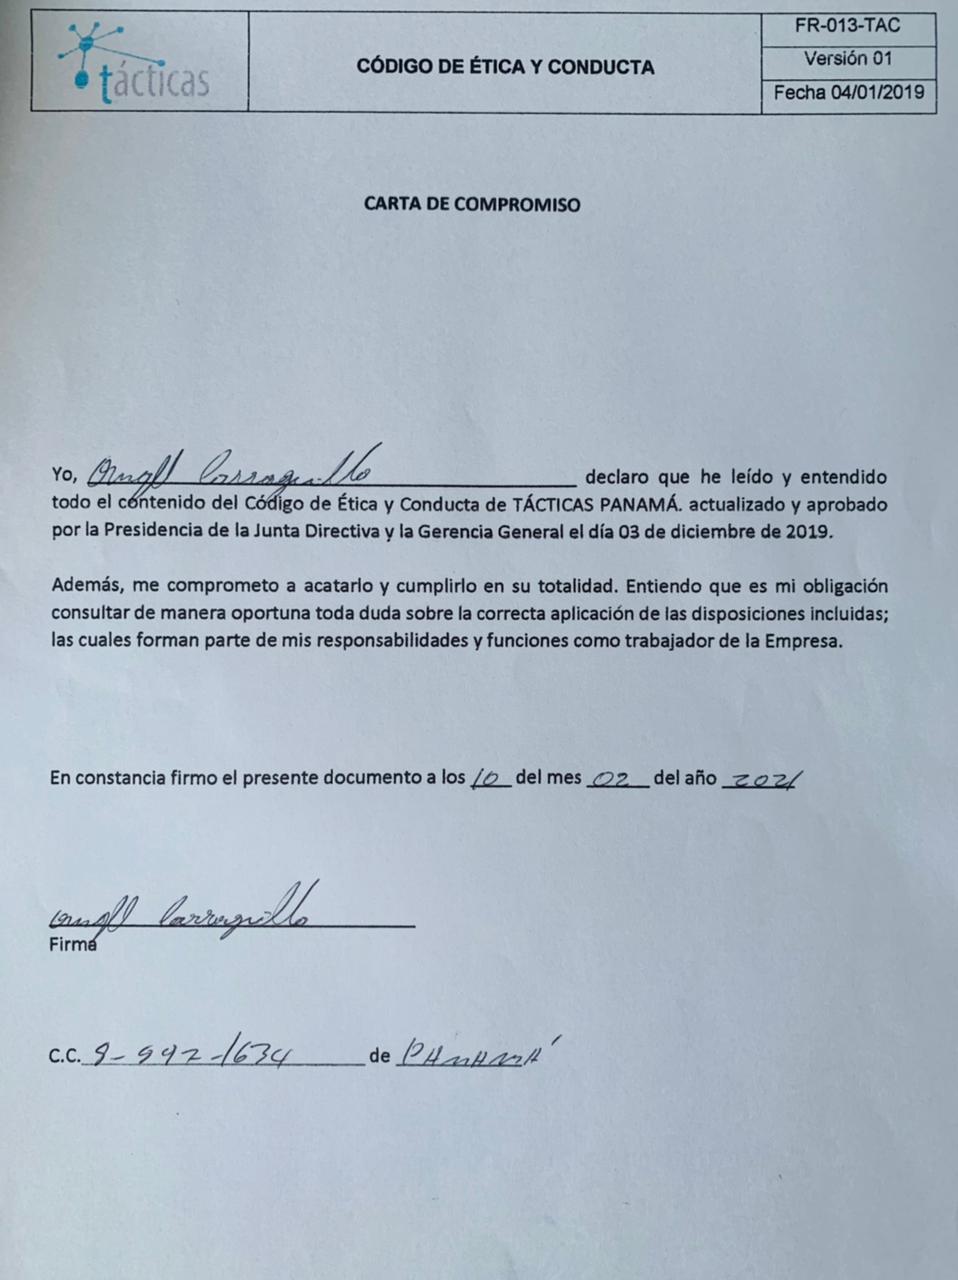 tácticas
CÓDIGO DE ÉTICA Y CONDUCTA
FR-013-TAC
Versión 01
Fecha 04/01/2019
CARTA DE COMPROMISO
Yo, declaro que he leído y entendido
todo el contenido del Código de Ética y Conducta de TÁCTICAS PANAMÁ. actualizado y aprobado
por la Presidencia de la Junta Directiva y la Gerencia General el día 03 de diciembre de 2019.
Además, me comprometo a acatarlo y cumplirlo en su totalidad. Entiendo que es mi obligación
consultar de manera oportuna toda duda sobre la correcta aplicación de las disposiciones incluidas;
las cuales forman parte de mis responsabilidades y funciones como trabajador de la Empresa.
En constancia firmo el presente documento a los 10 del mes 02 del año 2021
Firma
C.C. de PANAMÁ